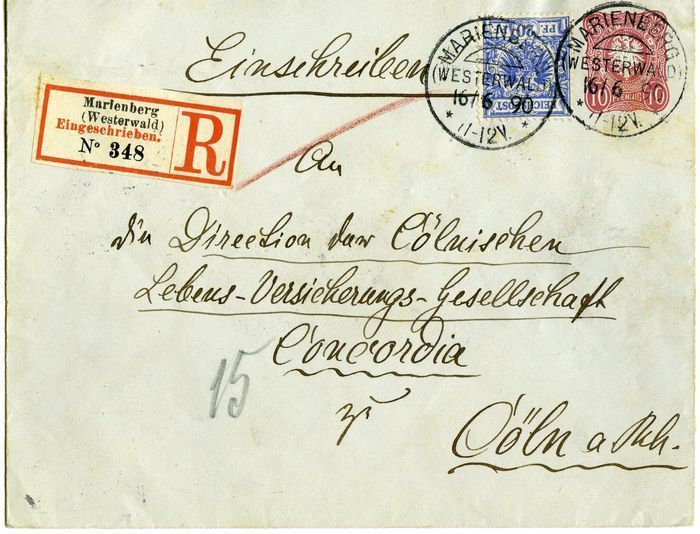 Einschreiben
Marienberg
(Westerwald)
Eingeschrieben.
No 348
R
PF 20
REICHSPOST
MARIENBERG
(WESTERWALD)
16/6 90
* 11-12V. *
10 PFENNIG 10
MARIENBERG
(WESTERWALD)
16/6
* 11-12V.
An
die Direction der Cölnischen
Lebens-Versicherungs-Gesellschaft
Concordia
15
zu
Cöln a Rh.